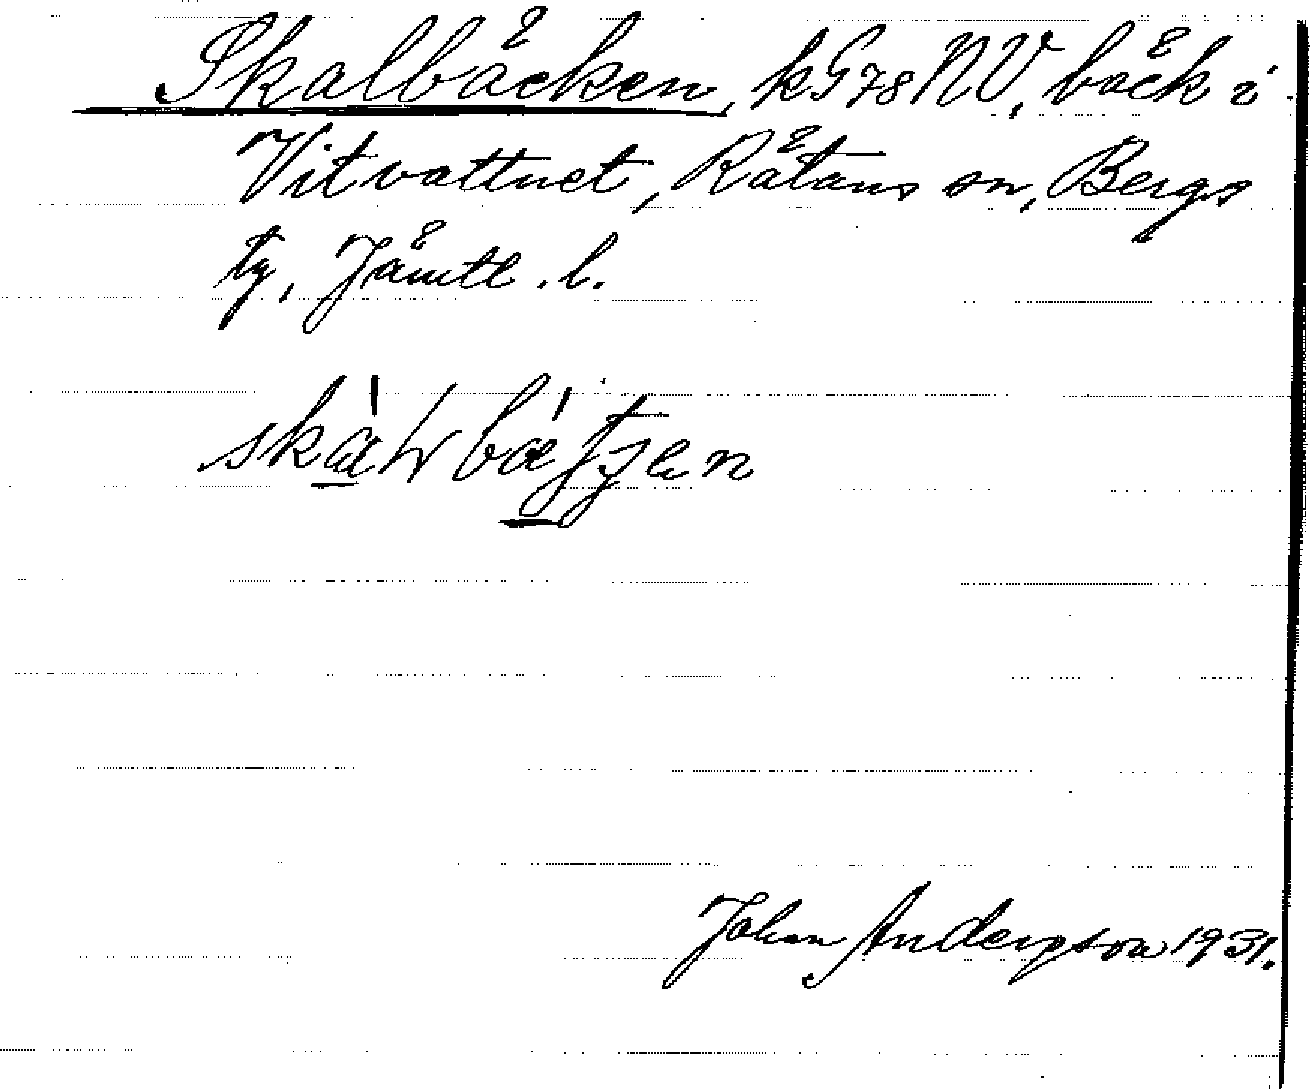 Skalbäcken, kG78NV, bäck i
Vitvattnet, Rätans sn, Bergs
tg, Jämtl. l.
Johan Anderson 1931.